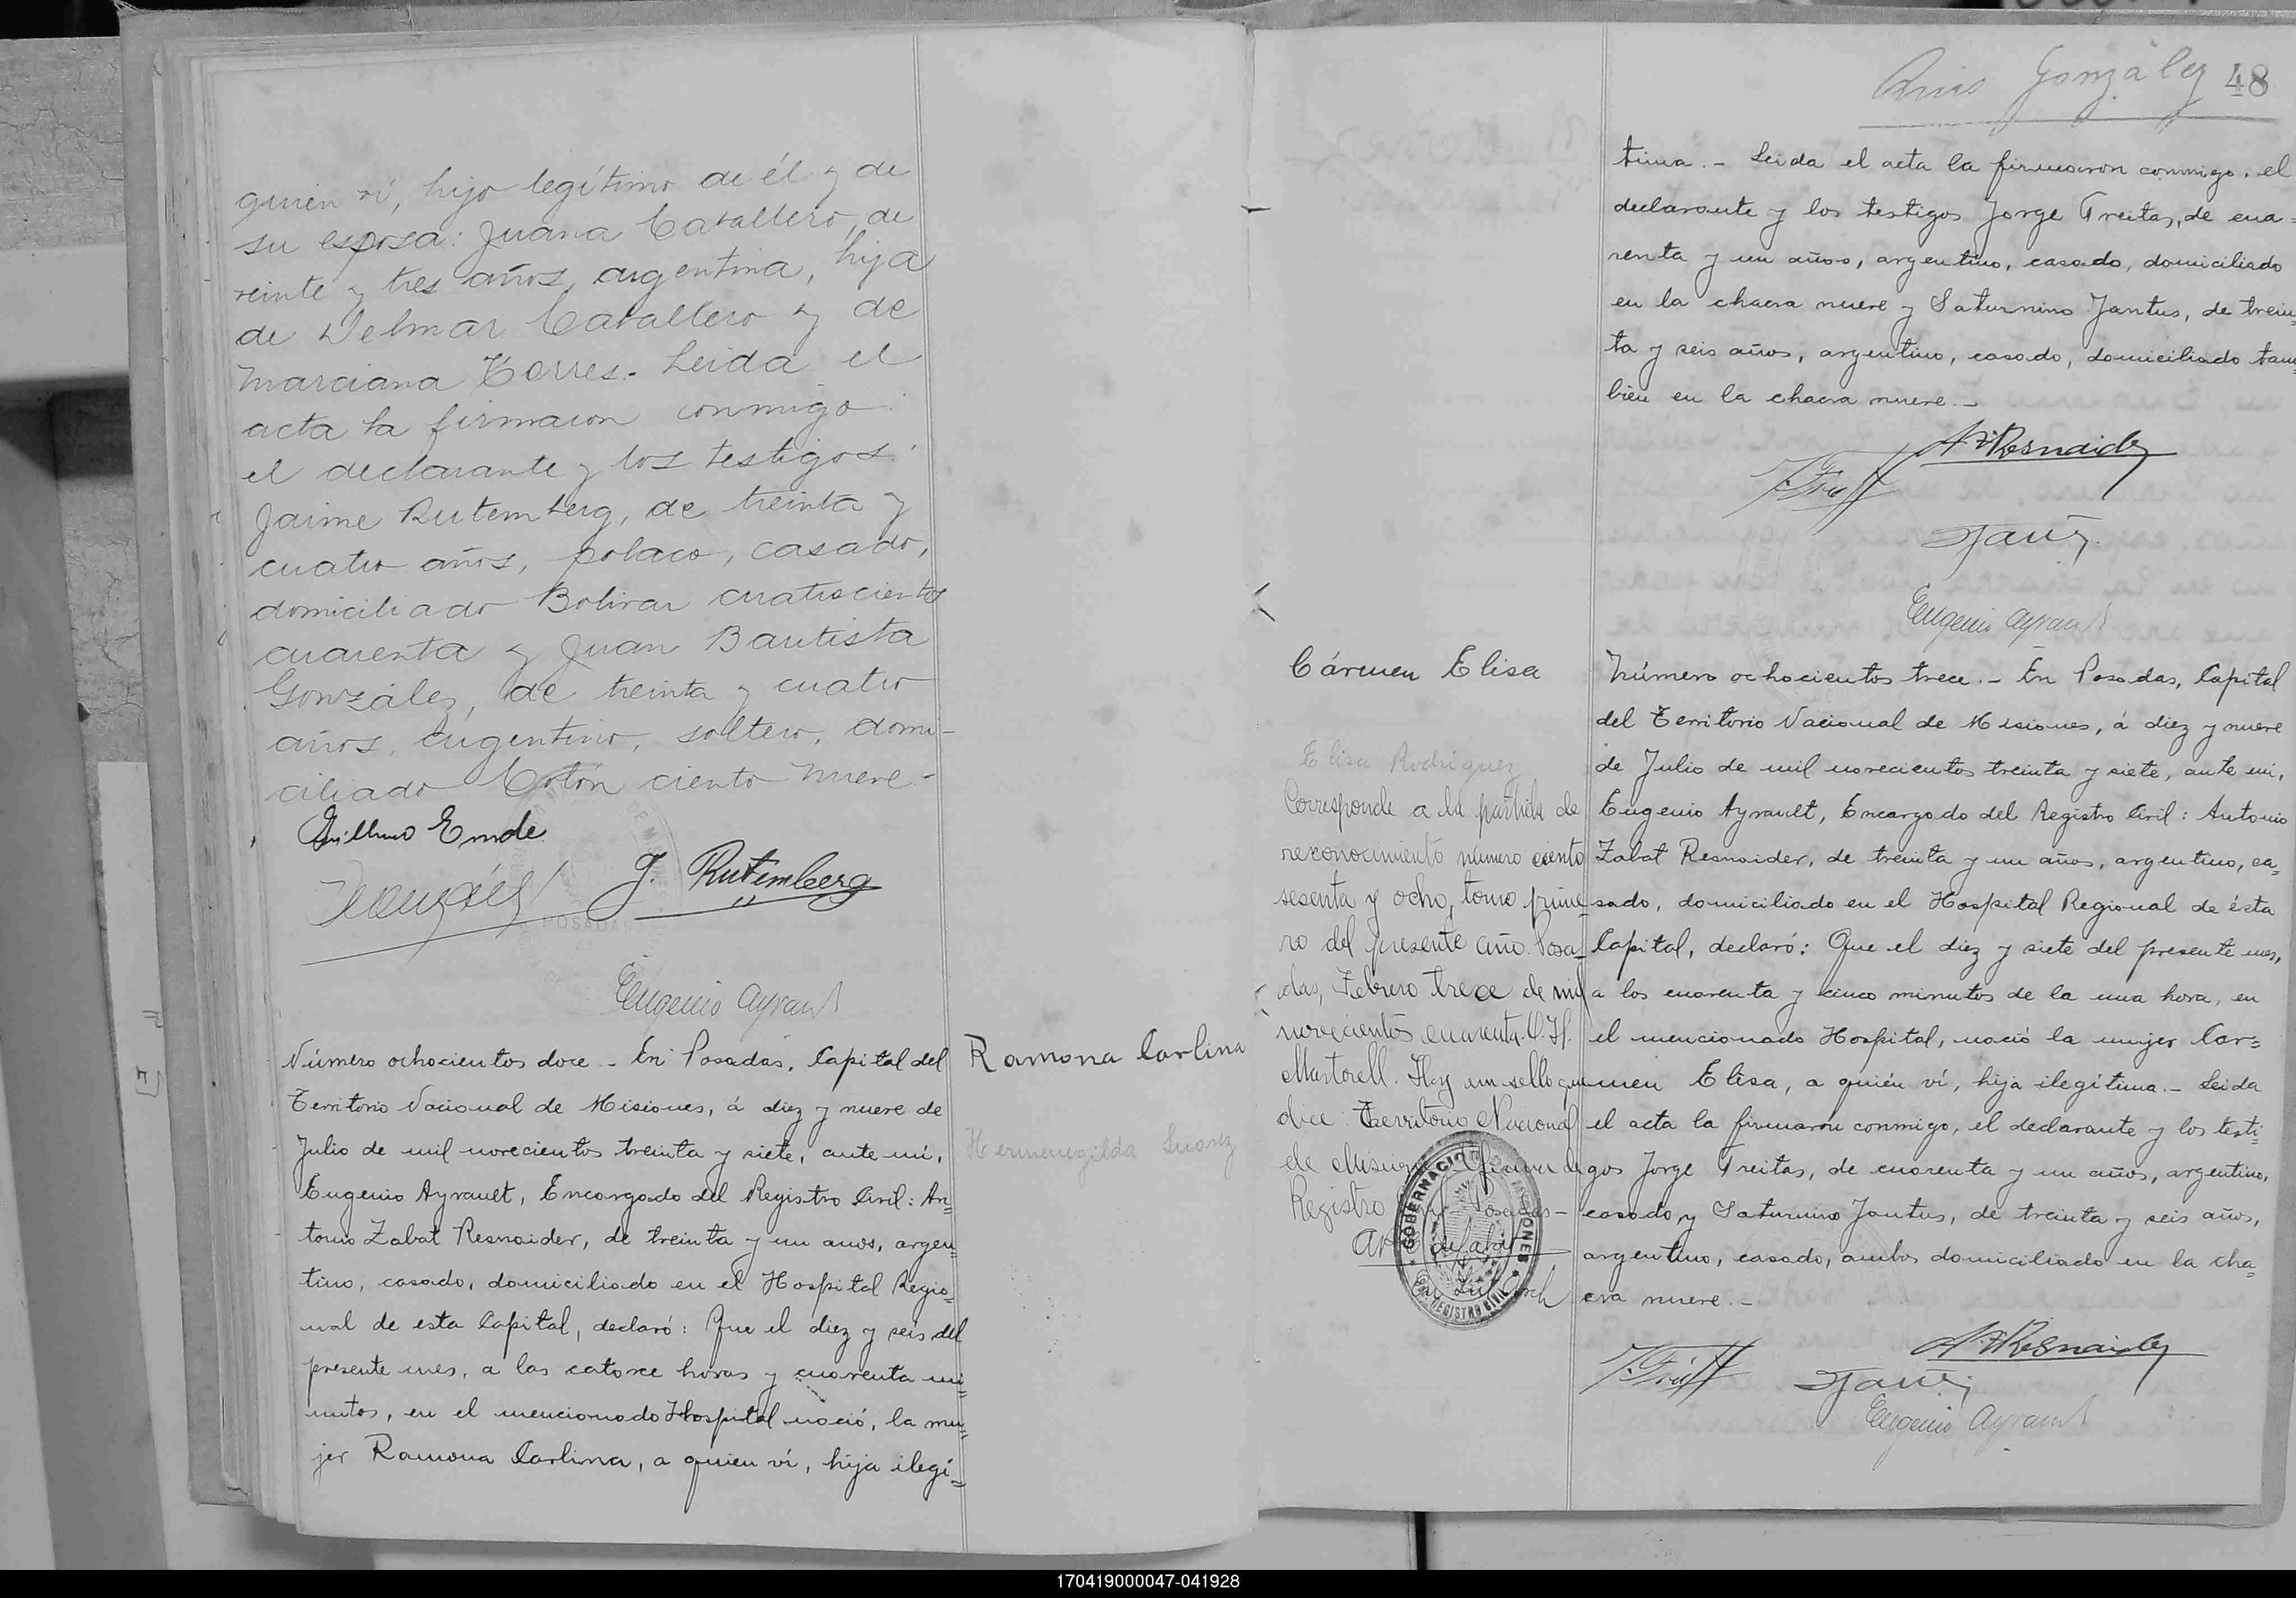 quien ví, hijo legítimo de él y de
su esposa: Juana Caballero, de
veinte y tres años, argentina, hija
de Delmar Caballero y de
Marciana Torres.- Leida el
acta la firmaron conmigo:
el declarante y los testigos:
Jaime Rutemberg, de treinta y
cuatro años, polaco, casado,
domiciliado Bolivar cuatrocientos
cuarenta y Juan Bautista
González, de treinta y cuatro
años, argentino, soltero, domi-
ciliado Colón ciento nueve.-
Guillermo Emde
J. Rutemberg
POSADAS
Eugenio Ayrault
Número ochocientos doce.- En Posadas, Capital del
Territorio Nacional de Misiones, á diez y nueve de
Julio de mil novecientos treinta y siete, ante mí,
Eugenio Ayrault, Encargado del Registro Civil: An=
tonio Zabat Resnaider, de treinta y un años, argen=
tino, casado, domiciliado en el Hospital Regio=
nal de esta Capital, declaró: Que el diez y seis del
presente mes, a las catorce horas y cuarenta mi=
nutos, en el mencionado Hospital nació, la mu=
jer Ramona Carlina, a quien ví, hija ilegí=
Ramona Carlina
Hermenegilda Suarez
González 48
tima.- Leida el acta la firmaron conmigo, el
declarante y los testigos Jorge Freitas, de cua=
renta y un años, argentino, casado, domiciliado
en la chacra nueve y Saturnino Jantus, de trein=
ta y seis años, argentino, casado, domiciliado tam=
bién en la chacra nueve.-
A. Z. Resnaider
Eugenio Ayrault
Cármen Elisa
Elisa Rodriguez
Corresponde a la partida de
reconocimiento número ciento
sesenta y ocho, tomo prime=
ro del presente año. Posa=
das, Febrero trece de mil
novecientos cuarenta. O. H.
Martorell. Hay un sello que
dice: Territorio Nacional
de Misiones
Registro Posadas-
GOBERNACION MISIONES
REGISTRO CIVIL
Número ochocientos trece.- En Posadas, Capital
del Territorio Nacional de Misiones, á diez y nueve
de Julio de mil novecientos treinta y siete, ante mi,
Eugenio Ayrault, Encargado del Registro Civil: Antonio
Zabat Resnaider, de treinta y un años, argentino, ca=
sado, domiciliado en el Hospital Regional de ésta
Capital, declaró: Que el diez y siete del presente mes,
a los cuarenta y cinco minutos de la una hora, en
el mencionado Hospital, nació la mujer Car=
men Elisa, a quién ví, hija ilegítima.- Leida
el acta la firmaron conmigo, el declarante y los testi=
gos Jorge Freitas, de cuarenta y un años, argentino,
casado, y Saturnino Jantus, de treinta y seis años,
argentino, casado, ambos domiciliado en la cha=
cra nueve.-
A. Z. Resnaider
Eugenio Ayrault
170419000047-041928